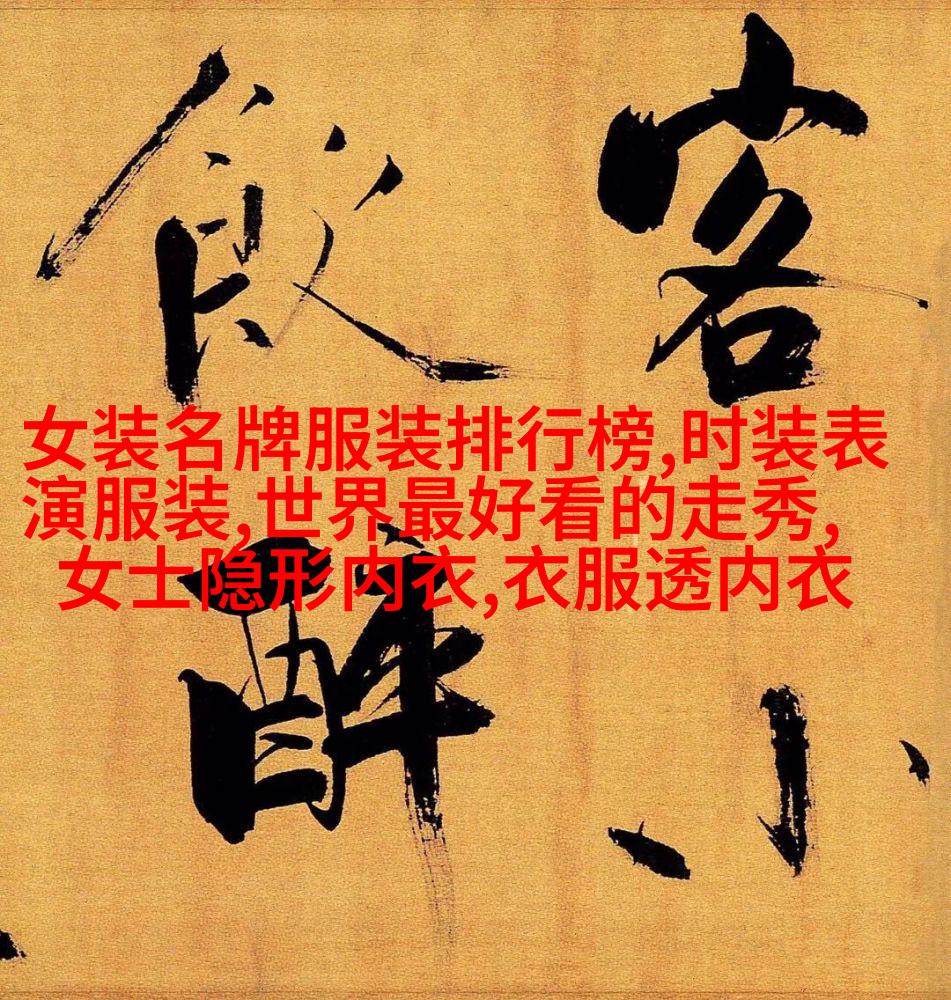 客小
飲醉
女装名牌服装排行榜,时装表
演服装,世界最好看的走秀,
女士隐形内衣,衣服透内衣